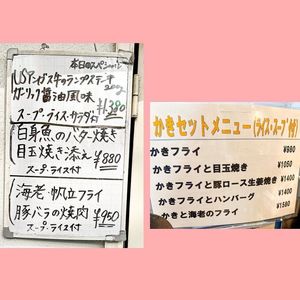 本日のスペシャル
USアンガス牛のランプステーキ
200g
ガーリック醤油風味
スープ・ライス・サラダ付
¥1,380
白身魚のバター焼き
目玉焼き添え
¥880
スープ・ライス付
海老・帆立フライ
豚バラの焼肉
¥950
スープ・ライス付
かきセットメニュー(ライス・スープ付)
かきフライ
¥980
かきフライと目玉焼き
¥1050
かきフライと豚ロース生姜焼き
¥1400
かきフライとハンバーグ
¥1400
かきと海老のフライ
¥1580